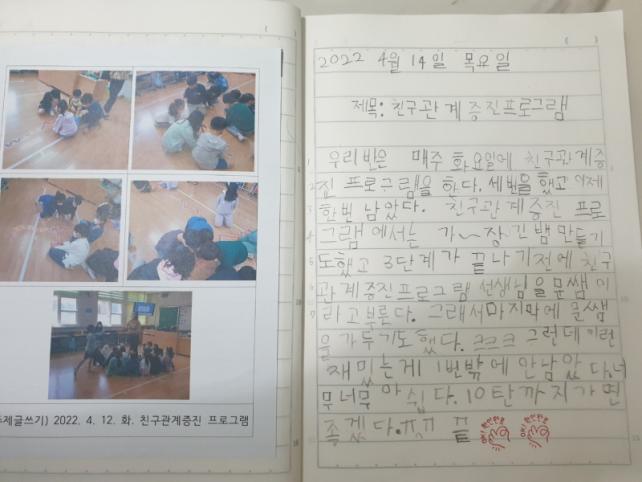 2022 4월 14일 목요일
제목: 친구관계증진프로그램
우리반은 매주 화요일에 친구관계증
진 프로그램을 한다. 세번을 했고 이제
한번 남았다. 친구관계증진 프로
그램에서는 가~장긴뱀만들기
도했고 3단계가 끝나기전에 친구
관계증진프로그램 선생님을 문쌤이
라고부른다. 그래서마지막에 문쌤
을 가두기도했다. 크크크 그런데 이런
재밌는게 1번밖에 안남았다.너
무너무 아쉽다.10탄까지가면
좋겠다.ㅠㅠ 끝
주제글쓰기) 2022. 4. 12. 화. 친구관계증진 프로그램